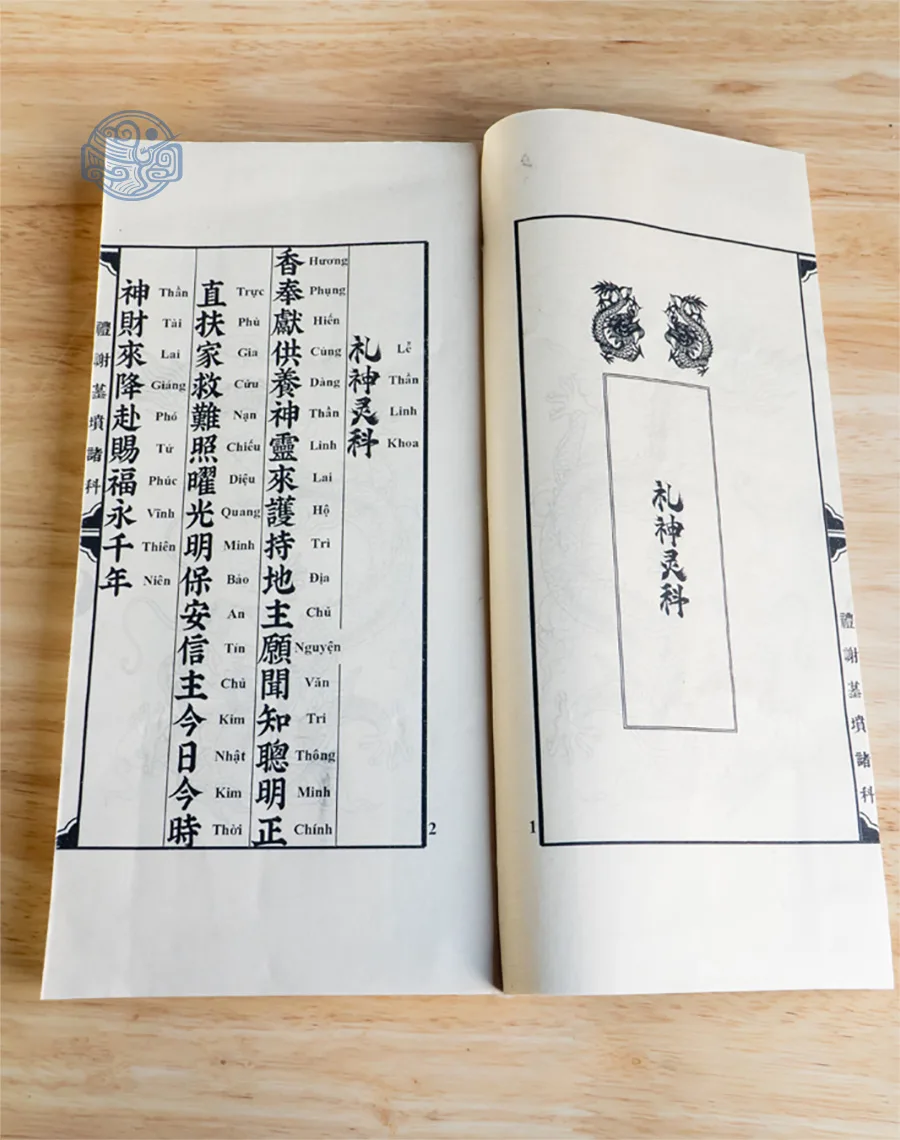 札神灵科
1
禮謝墓墳諸科
札神灵科
Lễ Thần Linh Khoa
香奉獻供養神靈來護持地主願聞知聰明正
Hương Phụng Hiến Cúng Dàng Thần Linh Lai Hộ Trì Địa Chủ Nguyện Văn Tri Thông Minh Chính
直扶家救難照曜光明保安信主今日今時
Trực Phù Gia Cứu Nạn Chiếu Diệu Quang Minh Bảo An Tín Chủ Kim Nhật Kim Thời
神財來降赴賜福永千年
Thần Tài Lai Giáng Phó Tứ Phúc Vĩnh Thiên Niên
禮謝墓墳諸科
2